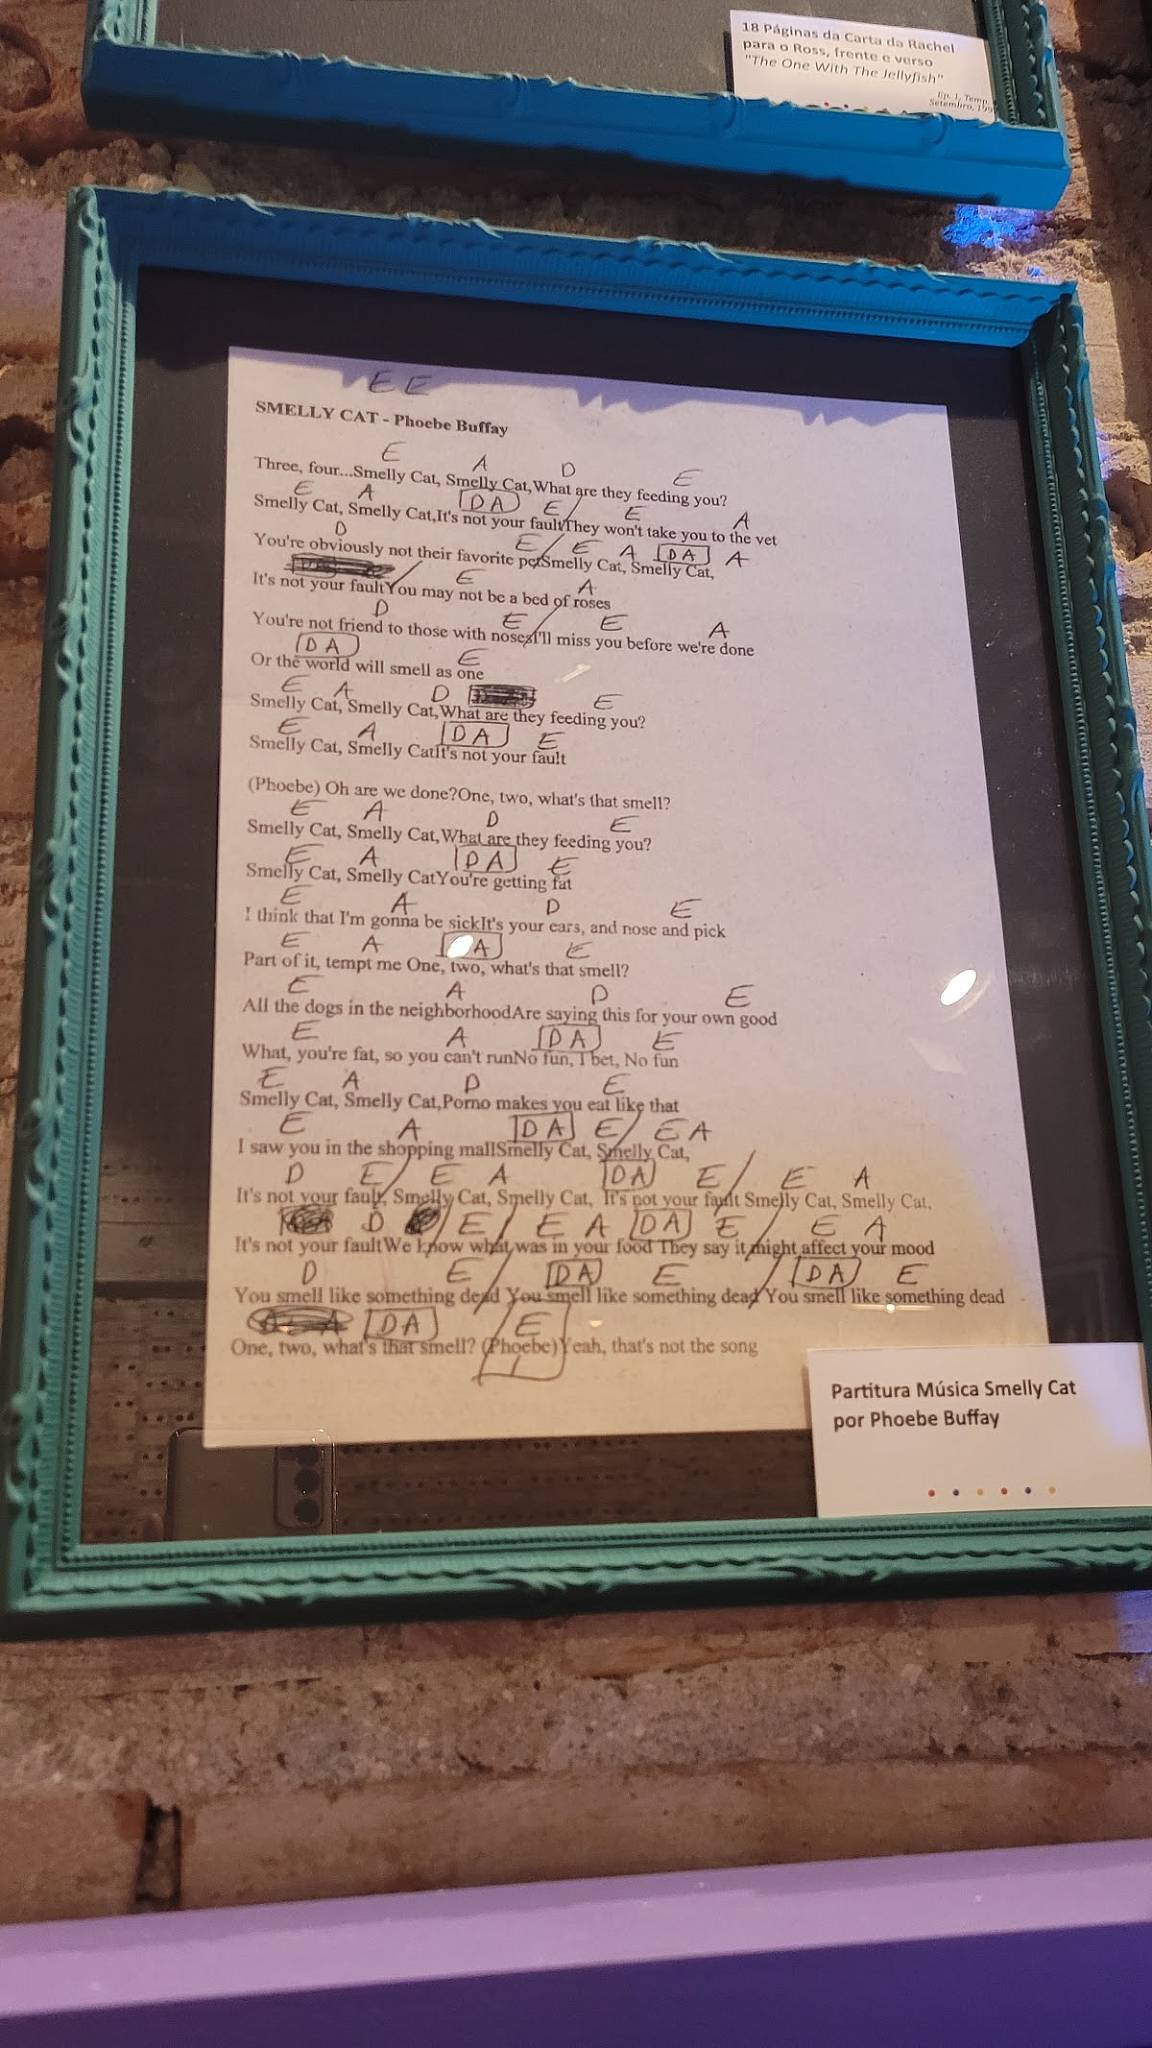 18 Páginas da Carta da Rachel
para o Ross, frente e verso
"The One With The Jellyfish"
Ep. 1, Temp.
Setembro, 199
E E
SMELLY CAT - Phoebe Buffay
E A D E
Three, four...Smelly Cat, Smelly Cat,What are they feeding you?
E A D A E / E A
Smelly Cat, Smelly Cat,It's not your faultThey won't take you to the vet
D E / E A D A A
You're obviously not their favorite petSmelly Cat, Smelly Cat,
/ E A
It's not your faultYou may not be a bed of roses
D E / E A
You're not friend to those with nosesI'll miss you before we're done
D A E
Or the world will smell as one
E A D E
Smelly Cat, Smelly Cat,What are they feeding you?
E A D A E
Smelly Cat, Smelly CatIt's not your fault
(Phoebe) Oh are we done?One, two, what's that smell?
E A D E
Smelly Cat, Smelly Cat,What are they feeding you?
E A D A E
Smelly Cat, Smelly CatYou're getting fat
E A D E
I think that I'm gonna be sickIt's your ears, and nose and pick
E A A E
Part of it, tempt me One, two, what's that smell?
E A D E
All the dogs in the neighborhoodAre saying this for your own good
E A D A E
What, you're fat, so you can't runNo fun, I bet, No fun
E A D E
Smelly Cat, Smelly Cat,Porno makes you eat like that
E A D A E / E A
I saw you in the shopping mallSmelly Cat, Smelly Cat,
D E / E A D A E / E A
It's not your fault, Smelly Cat, Smelly Cat, It's not your fault Smelly Cat, Smelly Cat,
D / E / E A D A E / E A
It's not your faultWe know what was in your food They say it might affect your mood
D E / D A E / D A E
You smell like something dead You smell like something dead You smell like something dead
D A E
One, two, what's that smell? (Phoebe)Yeah, that's not the song
Partitura Música Smelly Cat
por Phoebe Buffay